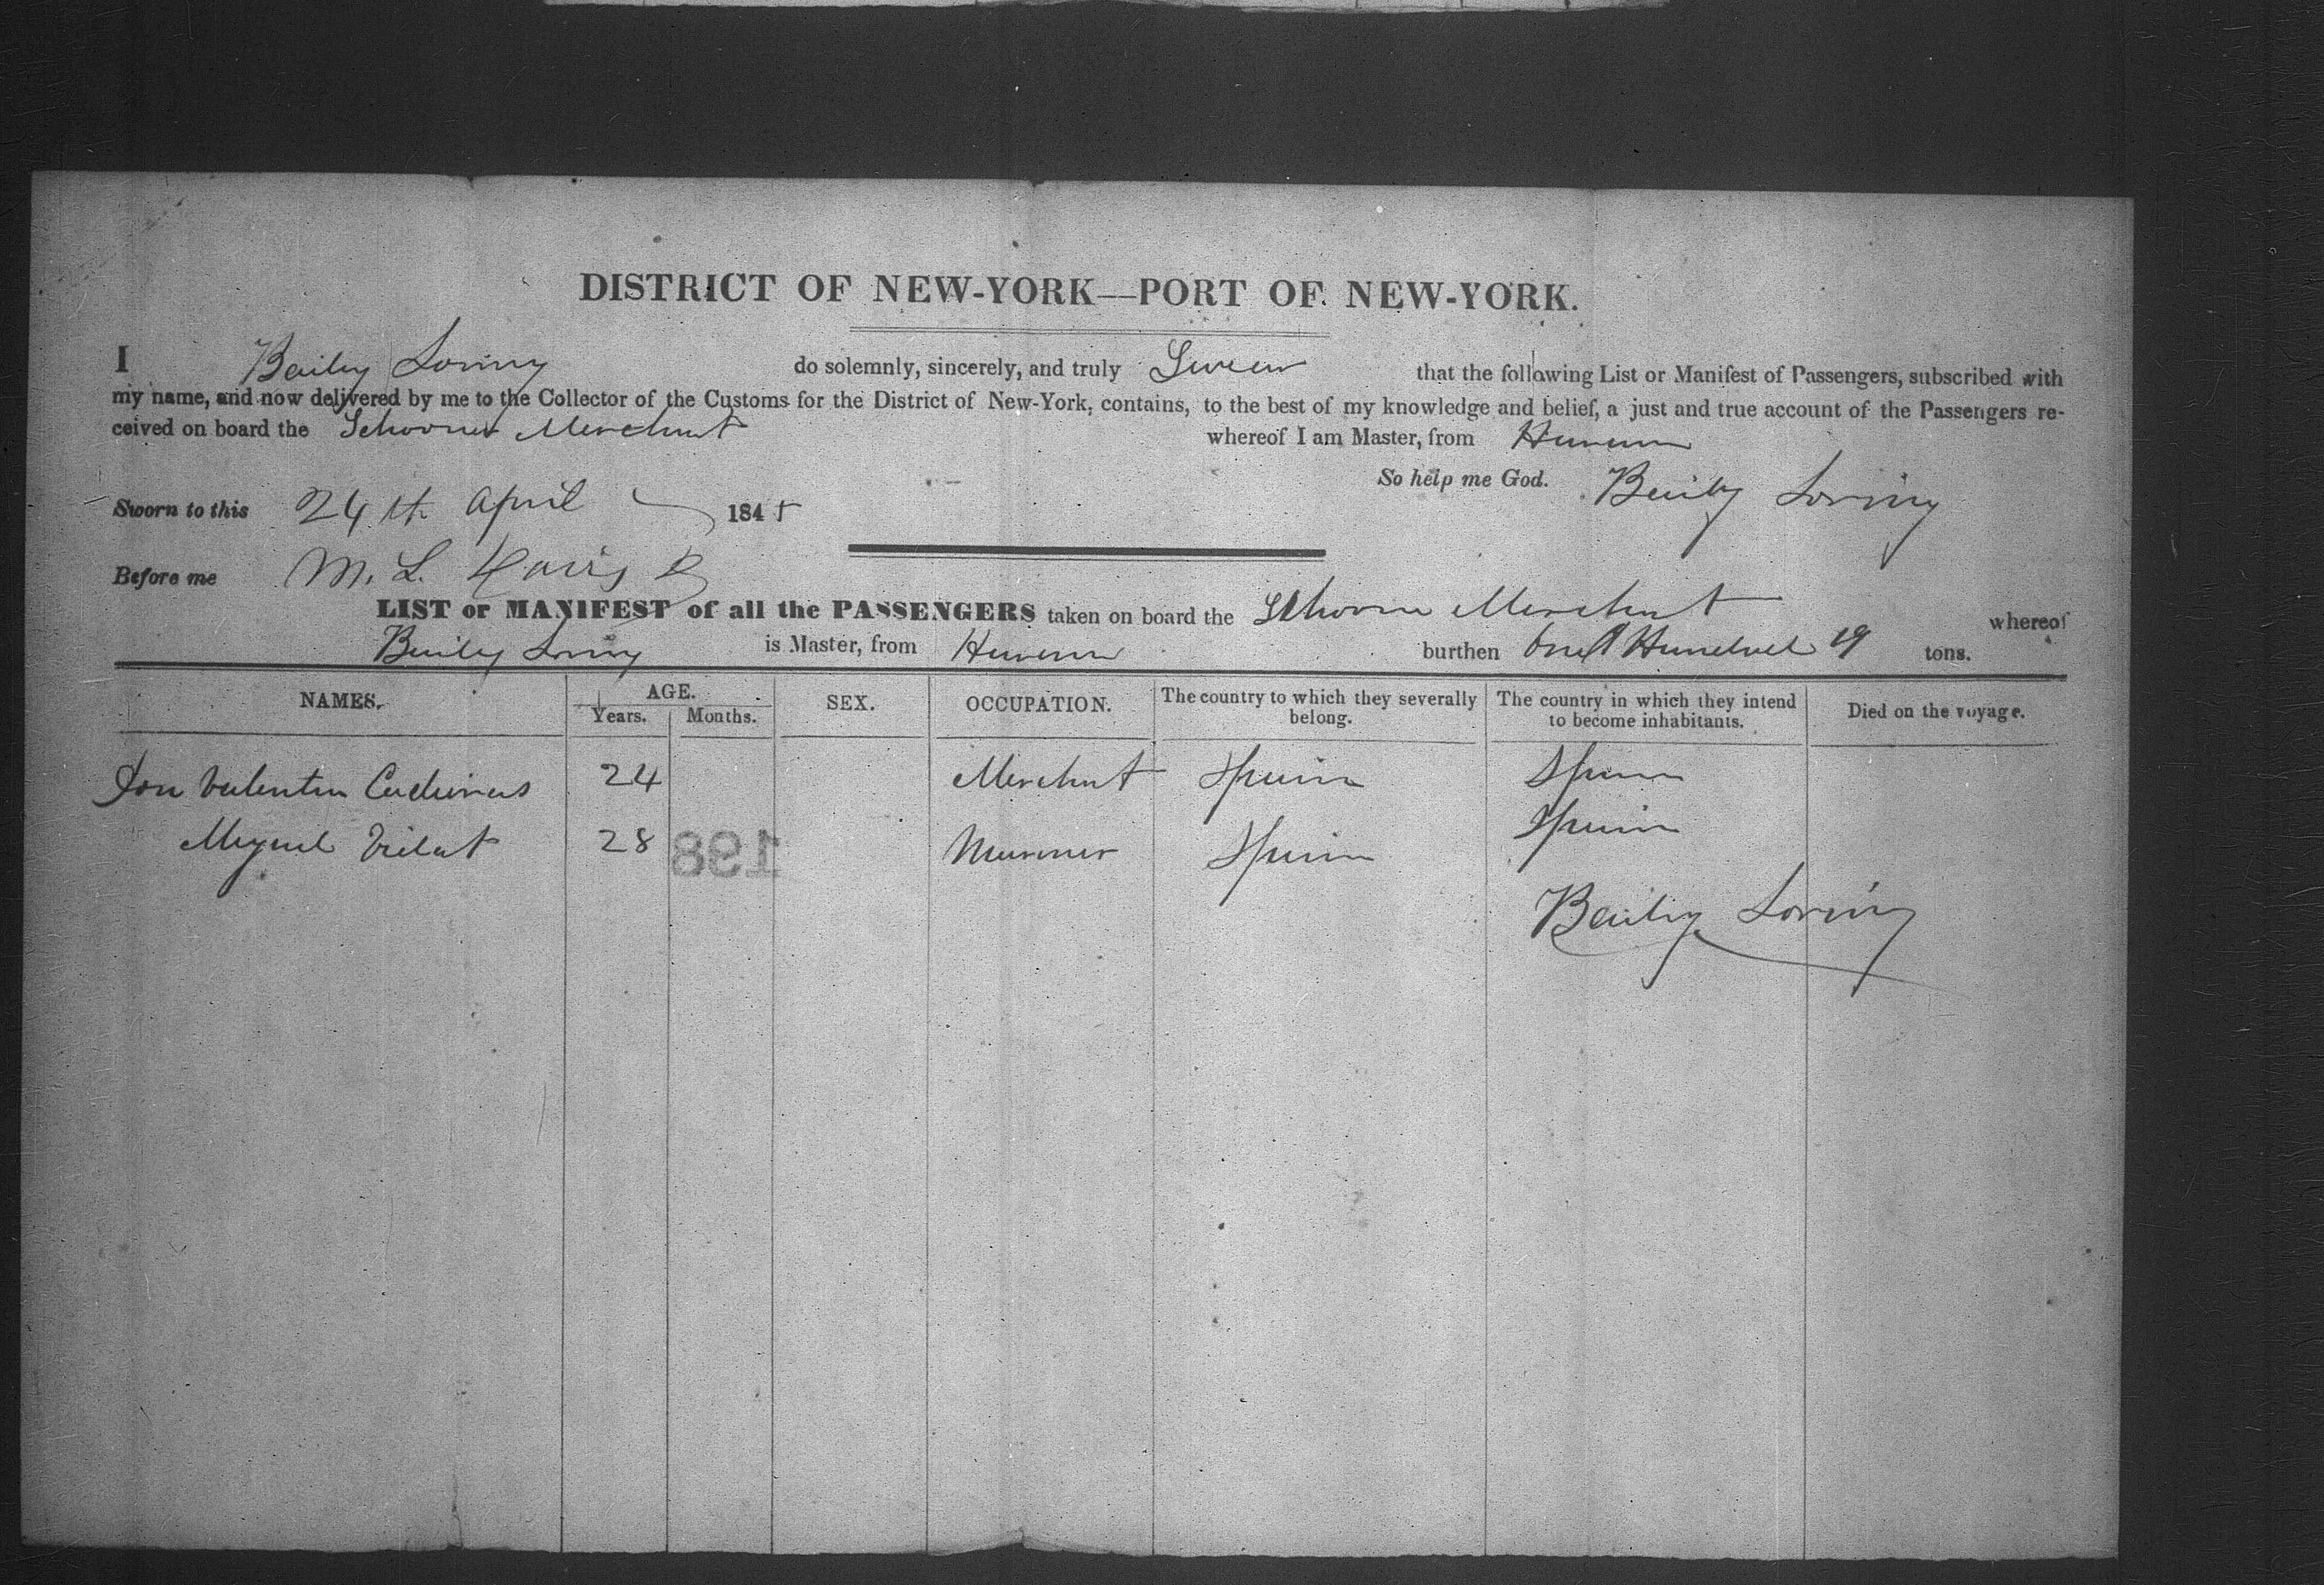 DISTRICT OF NEW-YORK—PORT OF NEW-YORK.
I Baily Loring do solemnly, sincerely, and truly Swear that the following List or Manifest of Passengers, subscribed with
my name, and now delivered by me to the Collector of the Customs for the District of New-York, contains, to the best of my knowledge and belief, a just and true account of the Passengers re-
ceived on board the Schooner Merchant whereof I am Master, from Havana
So help me God. Baily Loring
Sworn to this 24th April 184
Before me M. L. Davis
LIST or MANIFEST of all the PASSENGERS taken on board the Schooner Merchant whereof
Baily Loring is Master, from Havana burthen One Hundred 19 tons.
NAMES. AGE. SEX. OCCUPATION. The country to which they severally belong. The country in which they intend to become inhabitants. Died on the voyage.
Years. Months.
Don Valentin 24 Merchant Spain Spain
Miguel 28 Mariner Spain Spain
198
Baily Loring